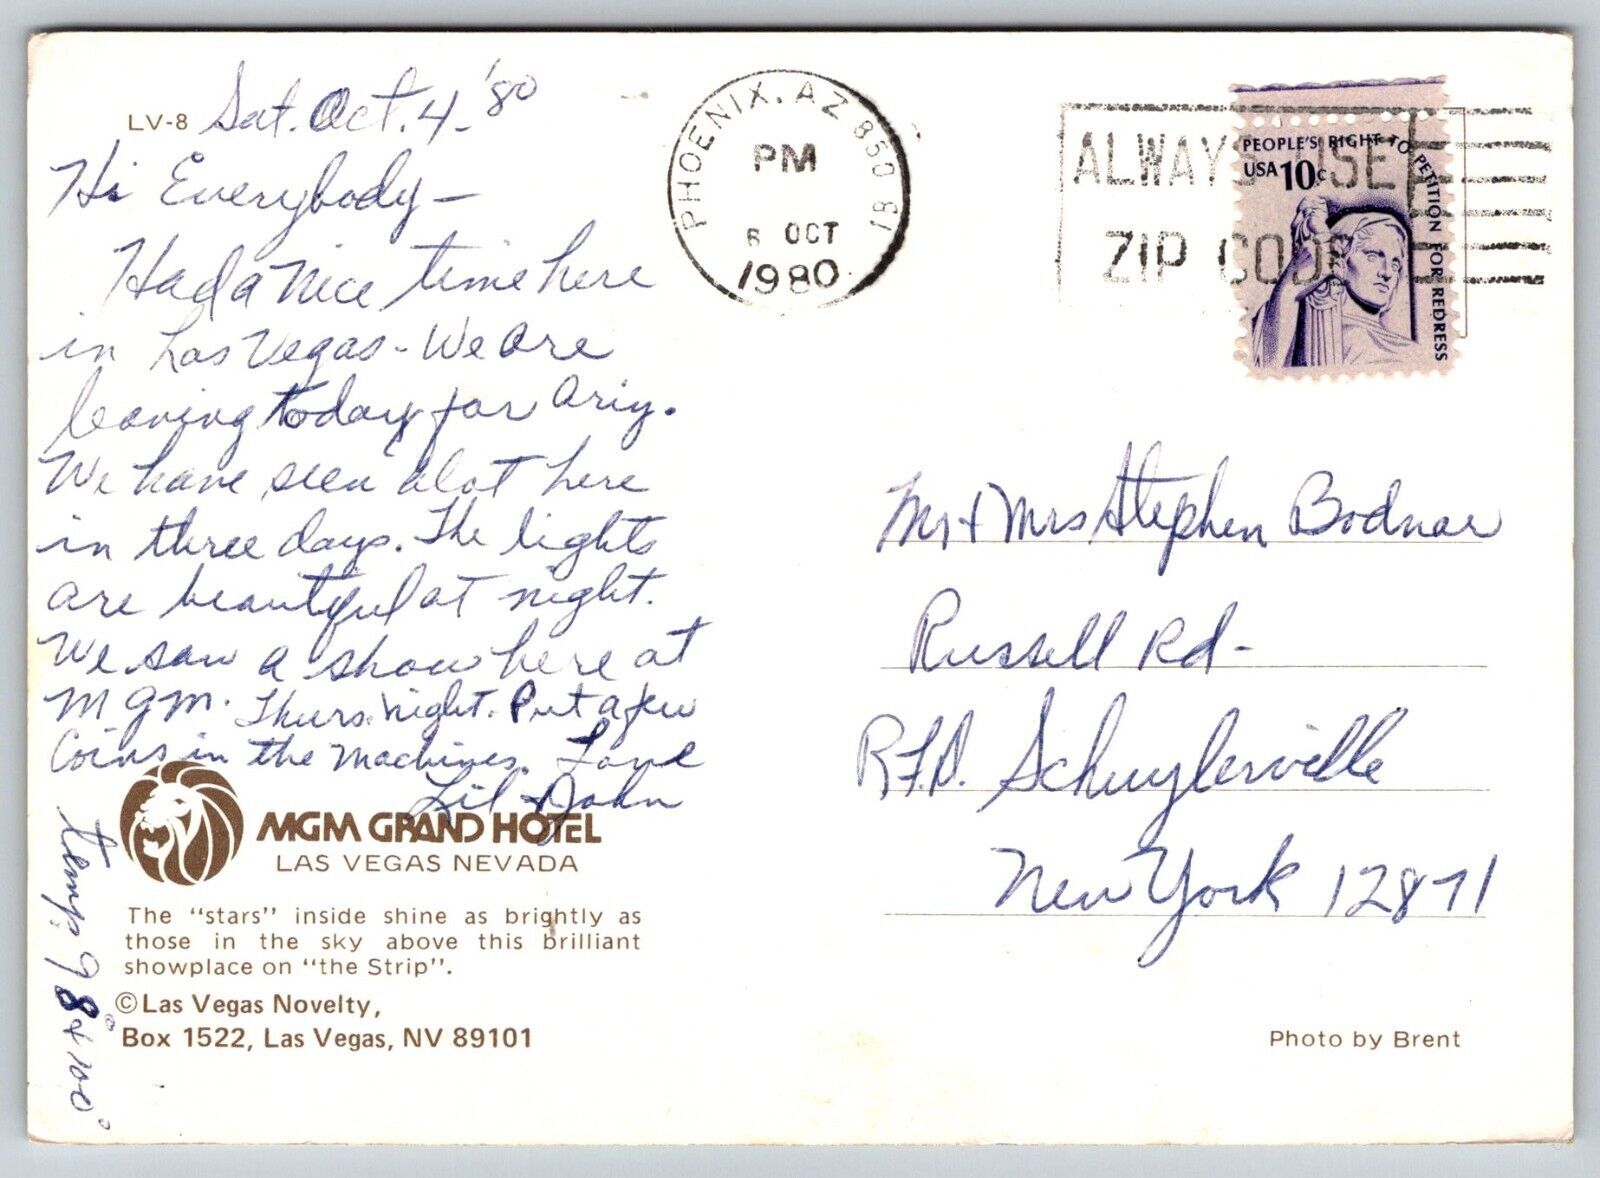 LV-8 Sat. Oct. 4 - '80
Hi Everybody -
Had a Nice time here
in Las Vegas - We are
leaving today for Ariz.
We have seen alot here
in three days. The lights
are beautiful at night.
We saw a show here at
MGM. Thurs. night. Put a few
Coins in the Machines. Love
Lil & John
temp. 98° & 100°
MGM GRAND HOTEL
LAS VEGAS NEVADA
The "stars" inside shine as brightly as
those in the sky above this brilliant
showplace on "the Strip".
©Las Vegas Novelty,
Box 1522, Las Vegas, NV 89101
PHOENIX, AZ 850 1B1
PM
6 OCT
1980
ALWAYS USE
ZIP CODE
PEOPLE'S RIGHT TO PETITION FOR REDRESS
USA 10c
Mr + Mrs Stephen Bodnar
Russell Rd -
R.F.D. Schuylerville
New York 12871
Photo by Brent